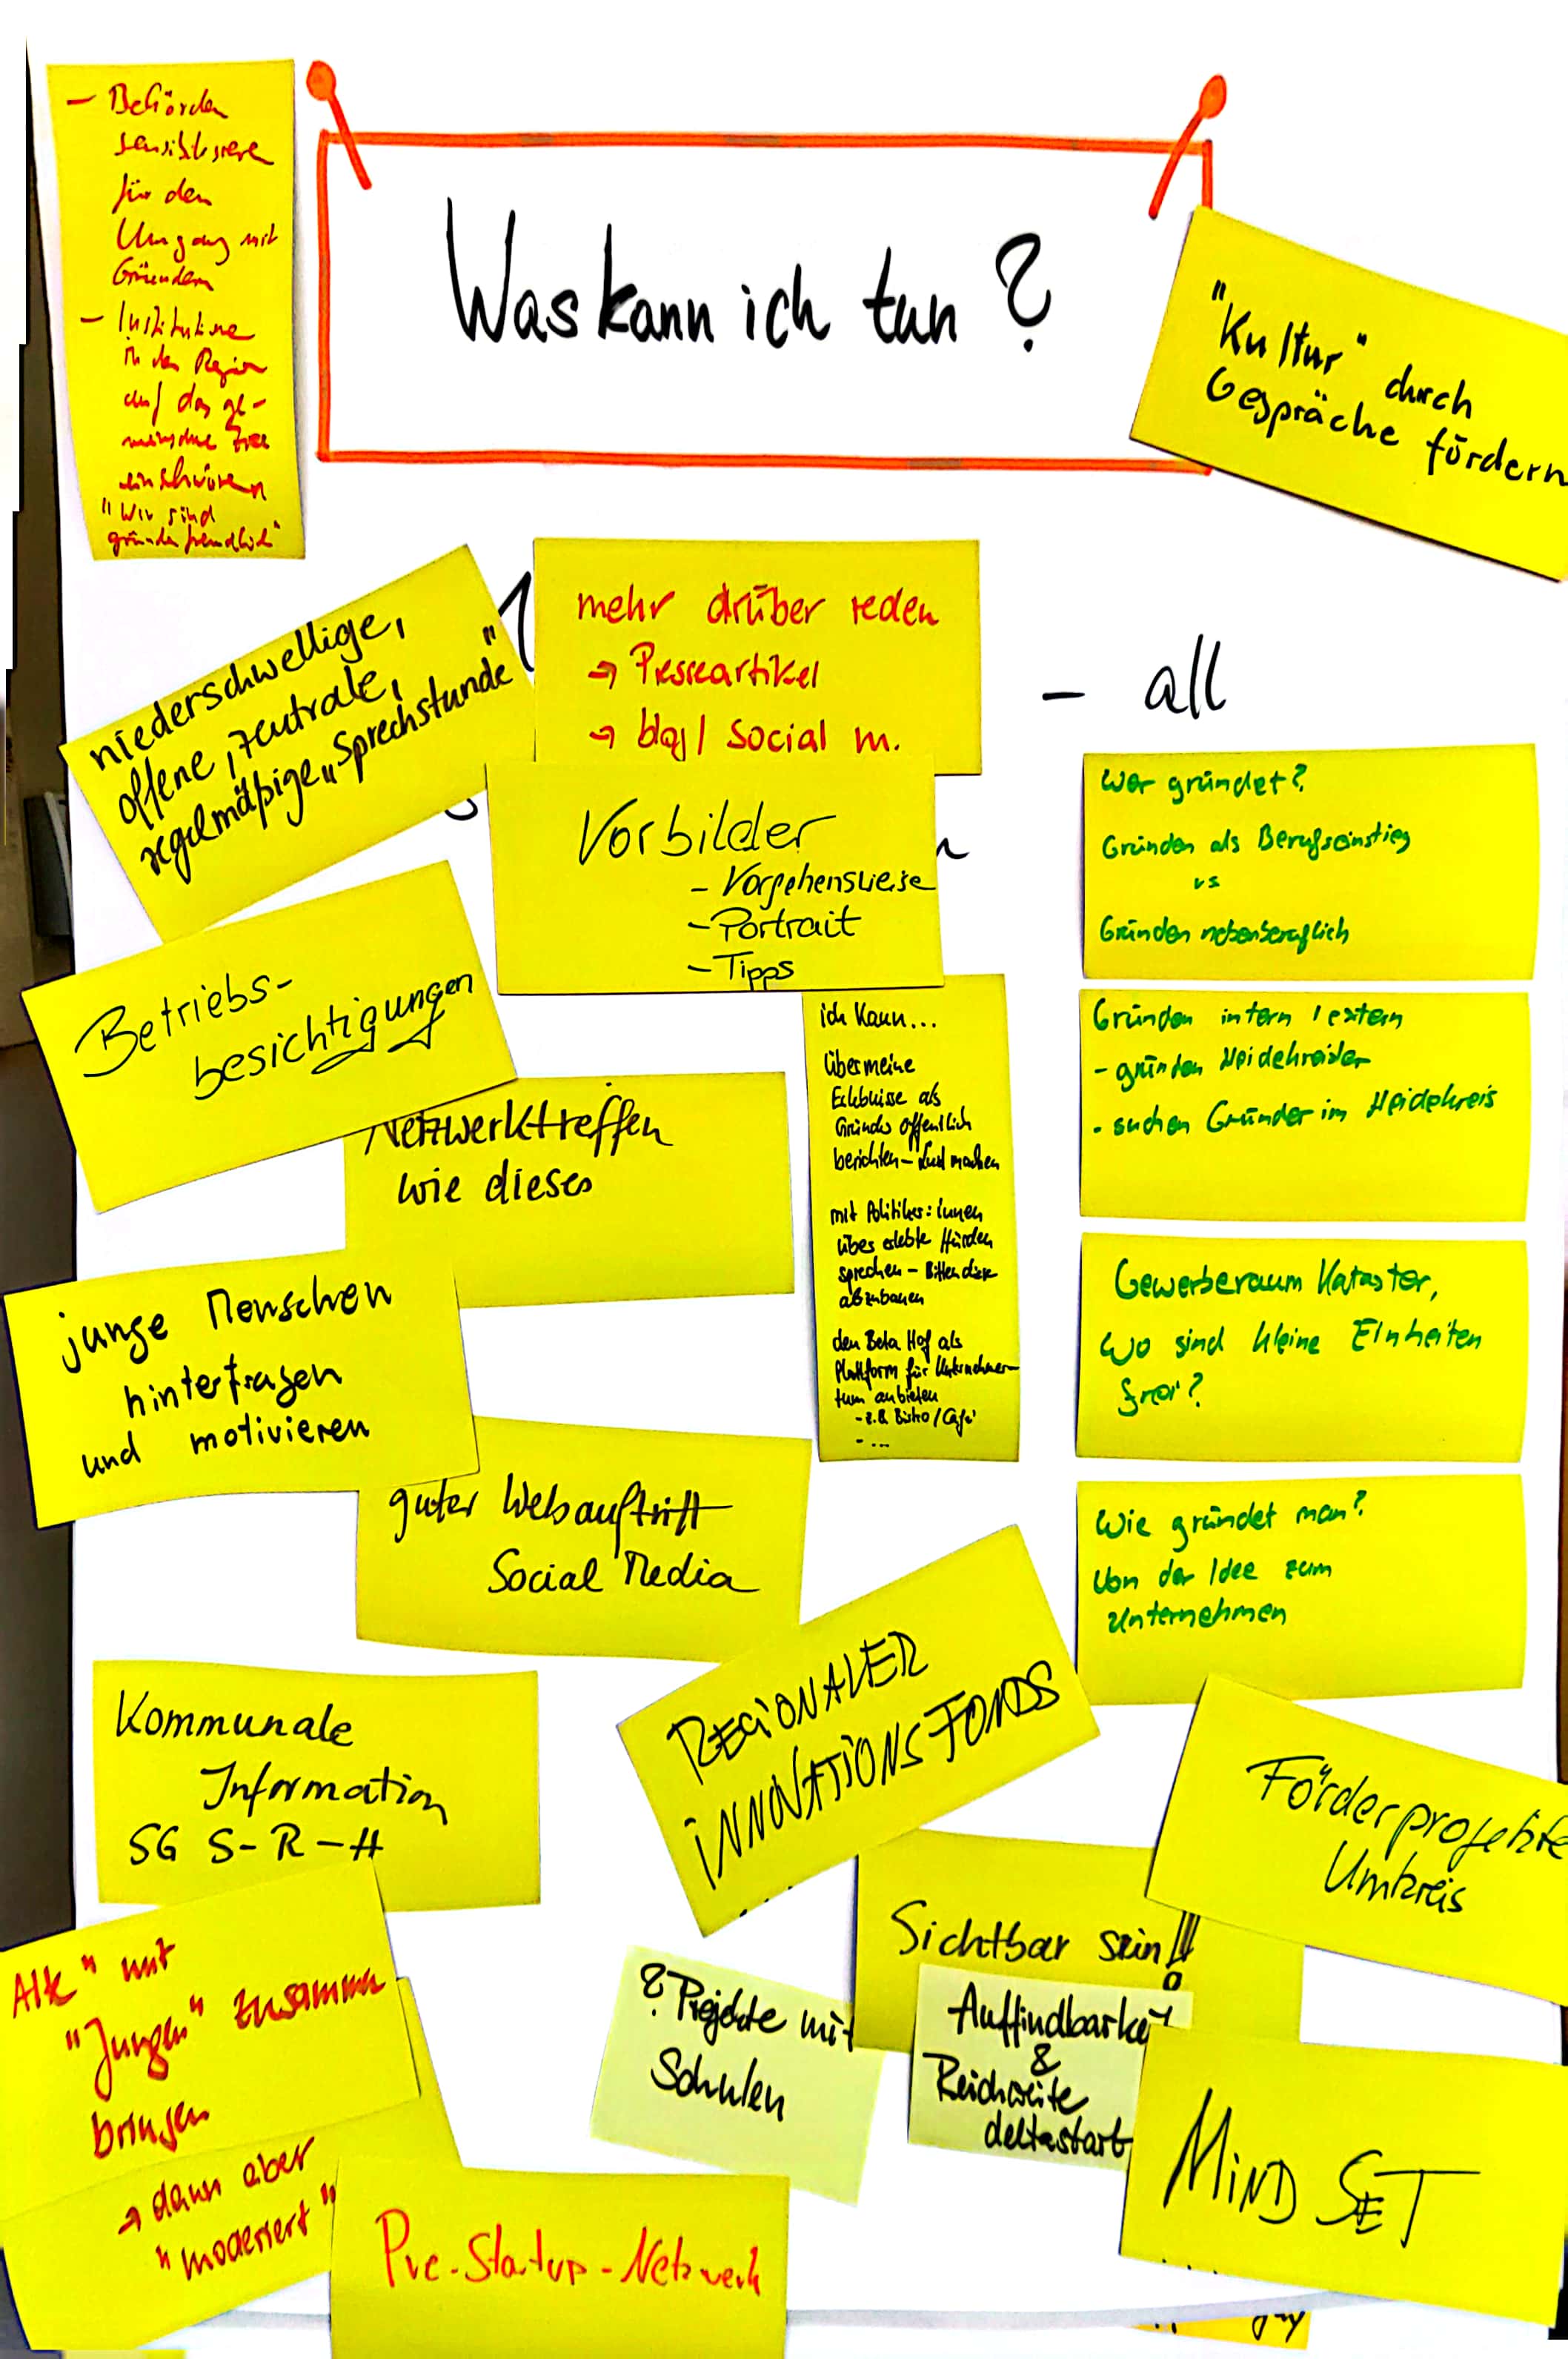 - Behörden
sensibilisiere
für den
Umgang mit
Gründern
- Institutione
in der Region
auf das ge-
meinsame
einschwören
"Wir sind
gründerfreundlich"
Was kann ich tun?
"Kultur" durch
Gespräche fördern
niederschwellige,
offene, zentrale,
regelmäßige „Sprechstunde"
mehr drüber reden
→ Presseartikel
→ blog / Social m.
- all
Vorbilder
- Vorgehensweise
- Portrait
- Tipps
Wer gründet?
Gründen als Berufseinstieg
vs
Gründen nebenberuflich
Betriebs-
besichtigungen
Netzwerktreffen
wie dieses
ich kann...
über meine
Erlebnisse als
Gründer öffentlich
berichten - Lust machen
mit Politiker:innen
über erlebte Hürden
sprechen - Bitten diese
abzubauen
den Beta Hof als
Plattform für Unternehmer-
tum anbieten
- z.B. Bistro / Café
- ...
Gründen intern / extern
- gründen Heidekreisler
- suchen Gründer im Heidekreis
Gewerberaum Kataster,
wo sind kleine Einheiten
frei?
Wie gründet man?
Von der Idee zum
Unternehmen
junge Menschen
hinterfragen
und motivieren
guter Webauftritt
Social Media
Kommunale
Information
SG S-R-H
REGIONALER
INNOVATIONSFONDS
Förderprojekte
Umkreis
Sichtbar sein!!
Auffindbarkeit
&
Reichweite
deltastart
? Projekte mit
Schulen
Alte" mit
"Jungen" zusammen
bringen
→ dann aber
"moderiert"
Pre-Startup-Netzwerk
MIND SET